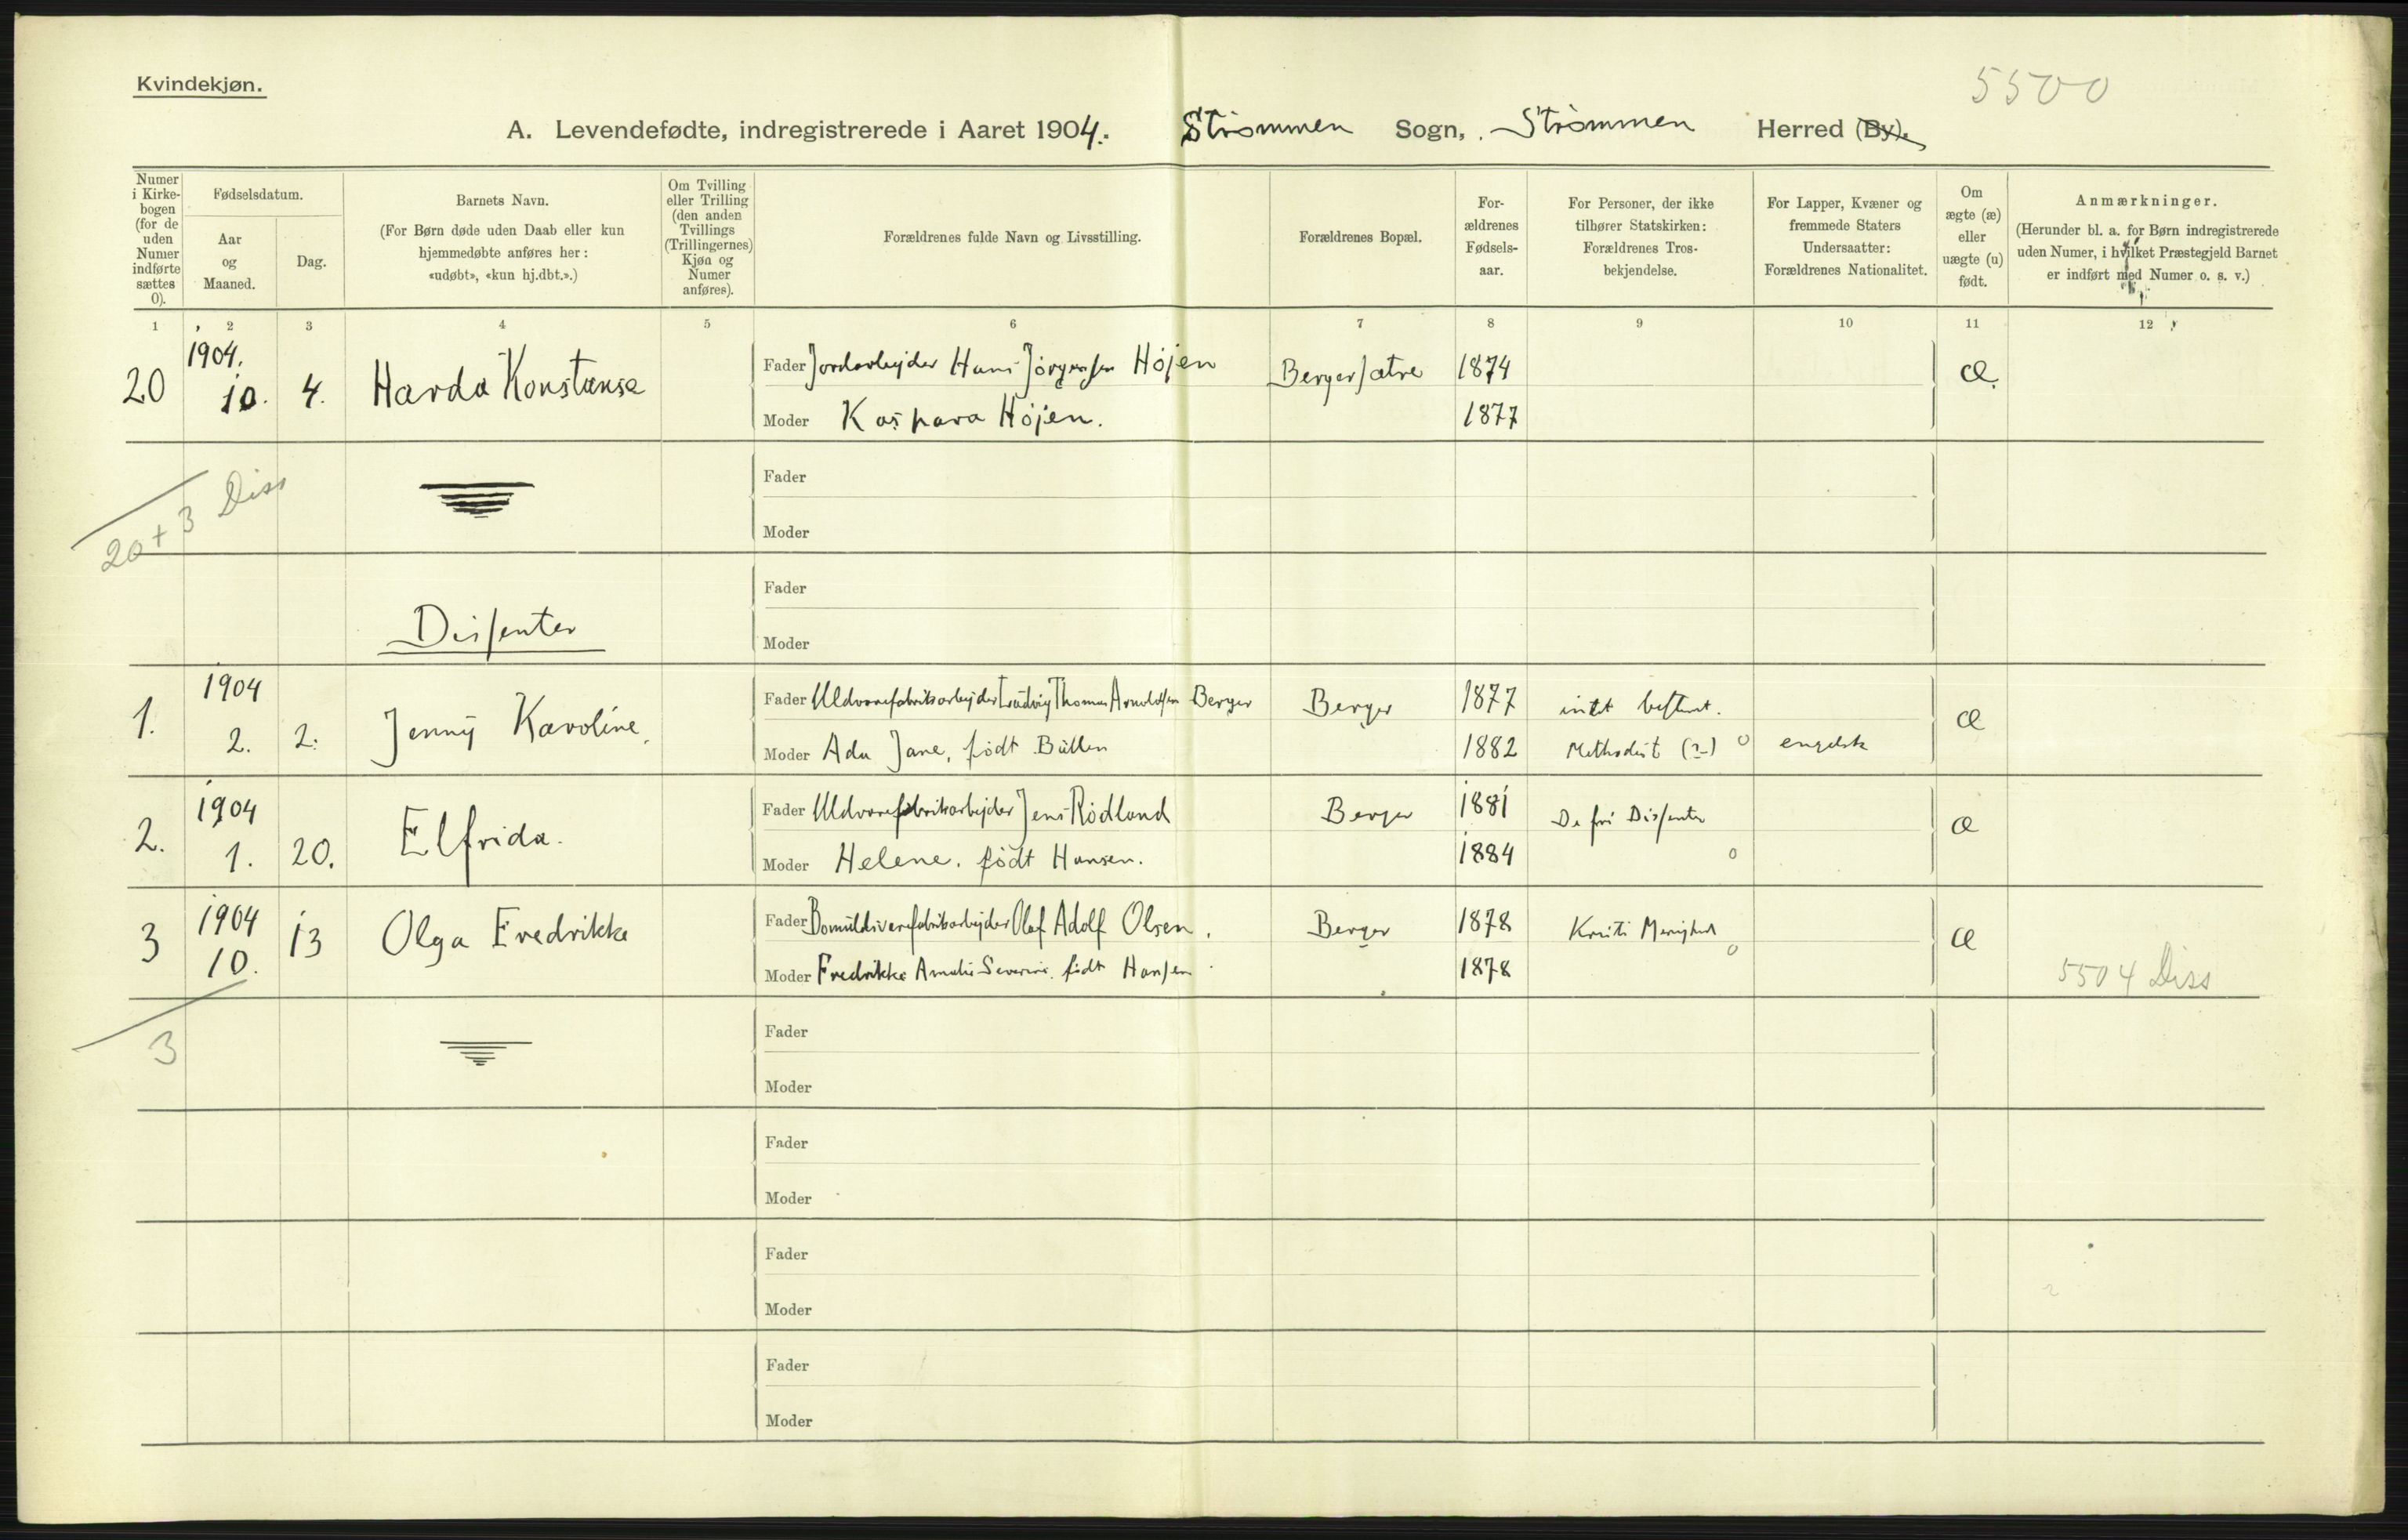 Kvindekjøn.
5500
A. Levendefødte, indregistrerede i Aaret 1904. Strömmen Sogn, Strömmen Herred (By).
Numer i Kirkebogen (for de uden Numer indførte sættes 0).
Fødselsdatum.
Aar og Maaned.
Dag.
Barnets Navn.
(For Børn døde uden Daab eller kun hjemmedøbte anføres her: «udøbt», «kun hj.dbt.».)
Om Tvilling eller Trilling (den anden Tvillings (Trillingernes) Kjøn og Numer anføres).
Forældrenes fulde Navn og Livsstilling.
Forældrenes Bopæl.
For-ældrenes Fødsels-aar.
For Personer, der ikke tilhører Statskirken: Forældrenes Tros-bekjendelse.
For Lapper, Kvæner og fremmede Staters Undersaatter: Forældrenes Nationalitet.
Om ægte (æ) eller uægte (u) født.
Anmærkninger.
(Herunder bl. a. for Børn indregistrerede uden Numer, i hvilket Præstegjeld Barnet er indført med Numer o. s. v.)
1 2 3 4 5 6 7 8 9 10 11 12
20 1904. 10. 4. Harda Konstanse Fader Jordarbejder Hans Jörgensen Höjen Bergersætre 1874 æ.
Moder Kaspara Höjen. 1877
20 + 3 Diss
Fader
Moder
Fader
Dissenter
Moder
1. 1904 2. 2. Jenny Karoline. Fader Uldvarefabrikarbejder Ludvig Thomas Arnoldsen Berger Berger 1877 intet bestemt. æ
Moder Ada Jane, født Büllen 1882 Methodist (?) o engelsk
2. 1904 1. 20. Elfrida. Fader Uldvarefabrikarbejder Jens Rödland Berger 1881 De fri Dissenter æ
Moder Helene, født Hansen. 1884 o
3 1904 10. 13 Olga Fredrikke Fader Bomuldsvarefabrikarbejder Olaf Adolf Olsen. Berger 1878 Kristi Menighed æ
Moder Fredrikke Amalie Severine født Hansen 1878 o
5504 Diss
3
Fader
Moder
Fader
Moder
Fader
Moder
Fader
Moder